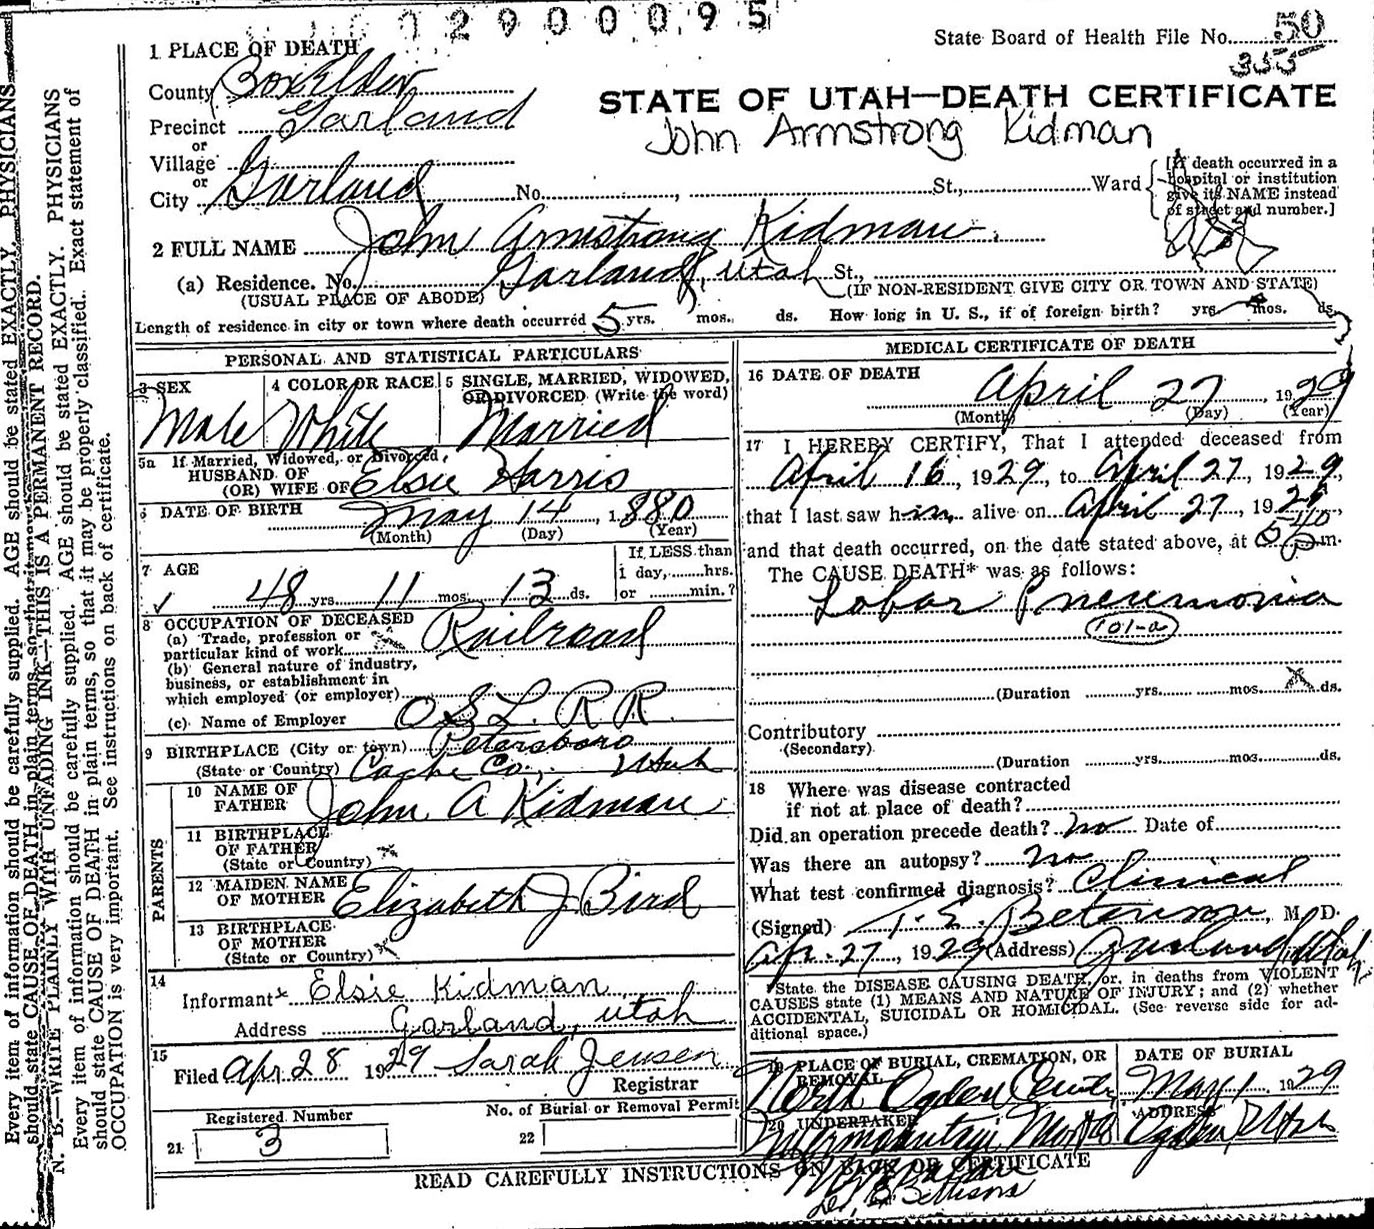 0 2 9 0 0 0 9 5
State Board of Health File No. 50
355
STATE OF UTAH—DEATH CERTIFICATE
John Armstrong Kidman
1 PLACE OF DEATH
County Box Elder
Precinct Garland
or
Village
or
City Garland No. , St., Ward
[If death occurred in a
hospital or institution
give its NAME instead
of street and number.]
2 FULL NAME John Armstrong Kidman
(a) Residence. No. Garland, Utah St.,
(USUAL PLACE OF ABODE) (IF NON-RESIDENT GIVE CITY OR TOWN AND STATE)
Length of residence in city or town where death occurred 5 yrs. mos. ds. How long in U. S., if of foreign birth? yrs. mos. ds.
PERSONAL AND STATISTICAL PARTICULARS
3 SEX
Male
4 COLOR OR RACE
White
5 SINGLE, MARRIED, WIDOWED,
OR DIVORCED (Write the word)
Married
5a If Married, Widowed, or Divorced,
HUSBAND OF
(OR) WIFE OF Elsie Harris
6 DATE OF BIRTH May 14, 1880
(Month) (Day) (Year)
7 AGE
48 yrs. 11 mos. 13 ds.
If LESS than
1 day, hrs.
or min.?
8 OCCUPATION OF DECEASED
(a) Trade, profession or
particular kind of work Railroad
(b) General nature of industry,
business, or establishment in
which employed (or employer)
(c) Name of Employer O S L. R R.
9 BIRTHPLACE (City or town) Petersboro
(State or Country) Cache Co., Utah
PARENTS
10 NAME OF
FATHER John A Kidman
11 BIRTHPLACE
OF FATHER
(State or Country)
12 MAIDEN NAME
OF MOTHER Elizabeth J Bird
13 BIRTHPLACE
OF MOTHER
(State or Country)
14
Informant Elsie Kidman
Address Garland, Utah
15
Filed Apr 28 1929 Sarah Jensen
Registrar
Registered Number
21 3
No. of Burial or Removal Permit
22
MEDICAL CERTIFICATE OF DEATH
16 DATE OF DEATH
April 27, 1929
(Month) (Day) (Year)
17 I HEREBY CERTIFY, That I attended deceased from
April 16, 1929, to April 27, 1929,
that I last saw him alive on April 27, 1929
and that death occurred, on the date stated above, at 540 P m.
The CAUSE DEATH* was as follows:
Lobar Pneumonia
101-a
(Duration yrs. mos. ds.
Contributory
(Secondary)
(Duration yrs. mos. ds.
18 Where was disease contracted
if not at place of death?
Did an operation precede death? no Date of
Was there an autopsy? no
What test confirmed diagnosis? Clinical
(Signed) M. D.
Apr. 27, 1929 (Address) Garland, Utah
State the DISEASE CAUSING DEATH, or. in deaths from VIOLENT
CAUSES state (1) MEANS AND NATURE OF INJURY; and (2) whether
ACCIDENTAL, SUICIDAL OR HOMICIDAL. (See reverse side for ad-
ditional space.)
19 PLACE OF BURIAL, CREMATION, OR
REMOVAL
North Ogden
DATE OF BURIAL
May 1, 1929
20 UNDERTAKER
ADDRESS
Ogden, Utah
READ CAREFULLY INSTRUCTIONS ON BACK OF CERTIFICATE
N. B.—WRITE PLAINLY WITH UNFADING INK—THIS IS A PERMANENT RECORD.
Every item of information should be carefully supplied. AGE should be stated EXACTLY. PHYSICIANS
should state CAUSE OF DEATH in plain terms, so that it may be properly classified. Exact statement of
OCCUPATION is very important. See instructions on back of certificate.